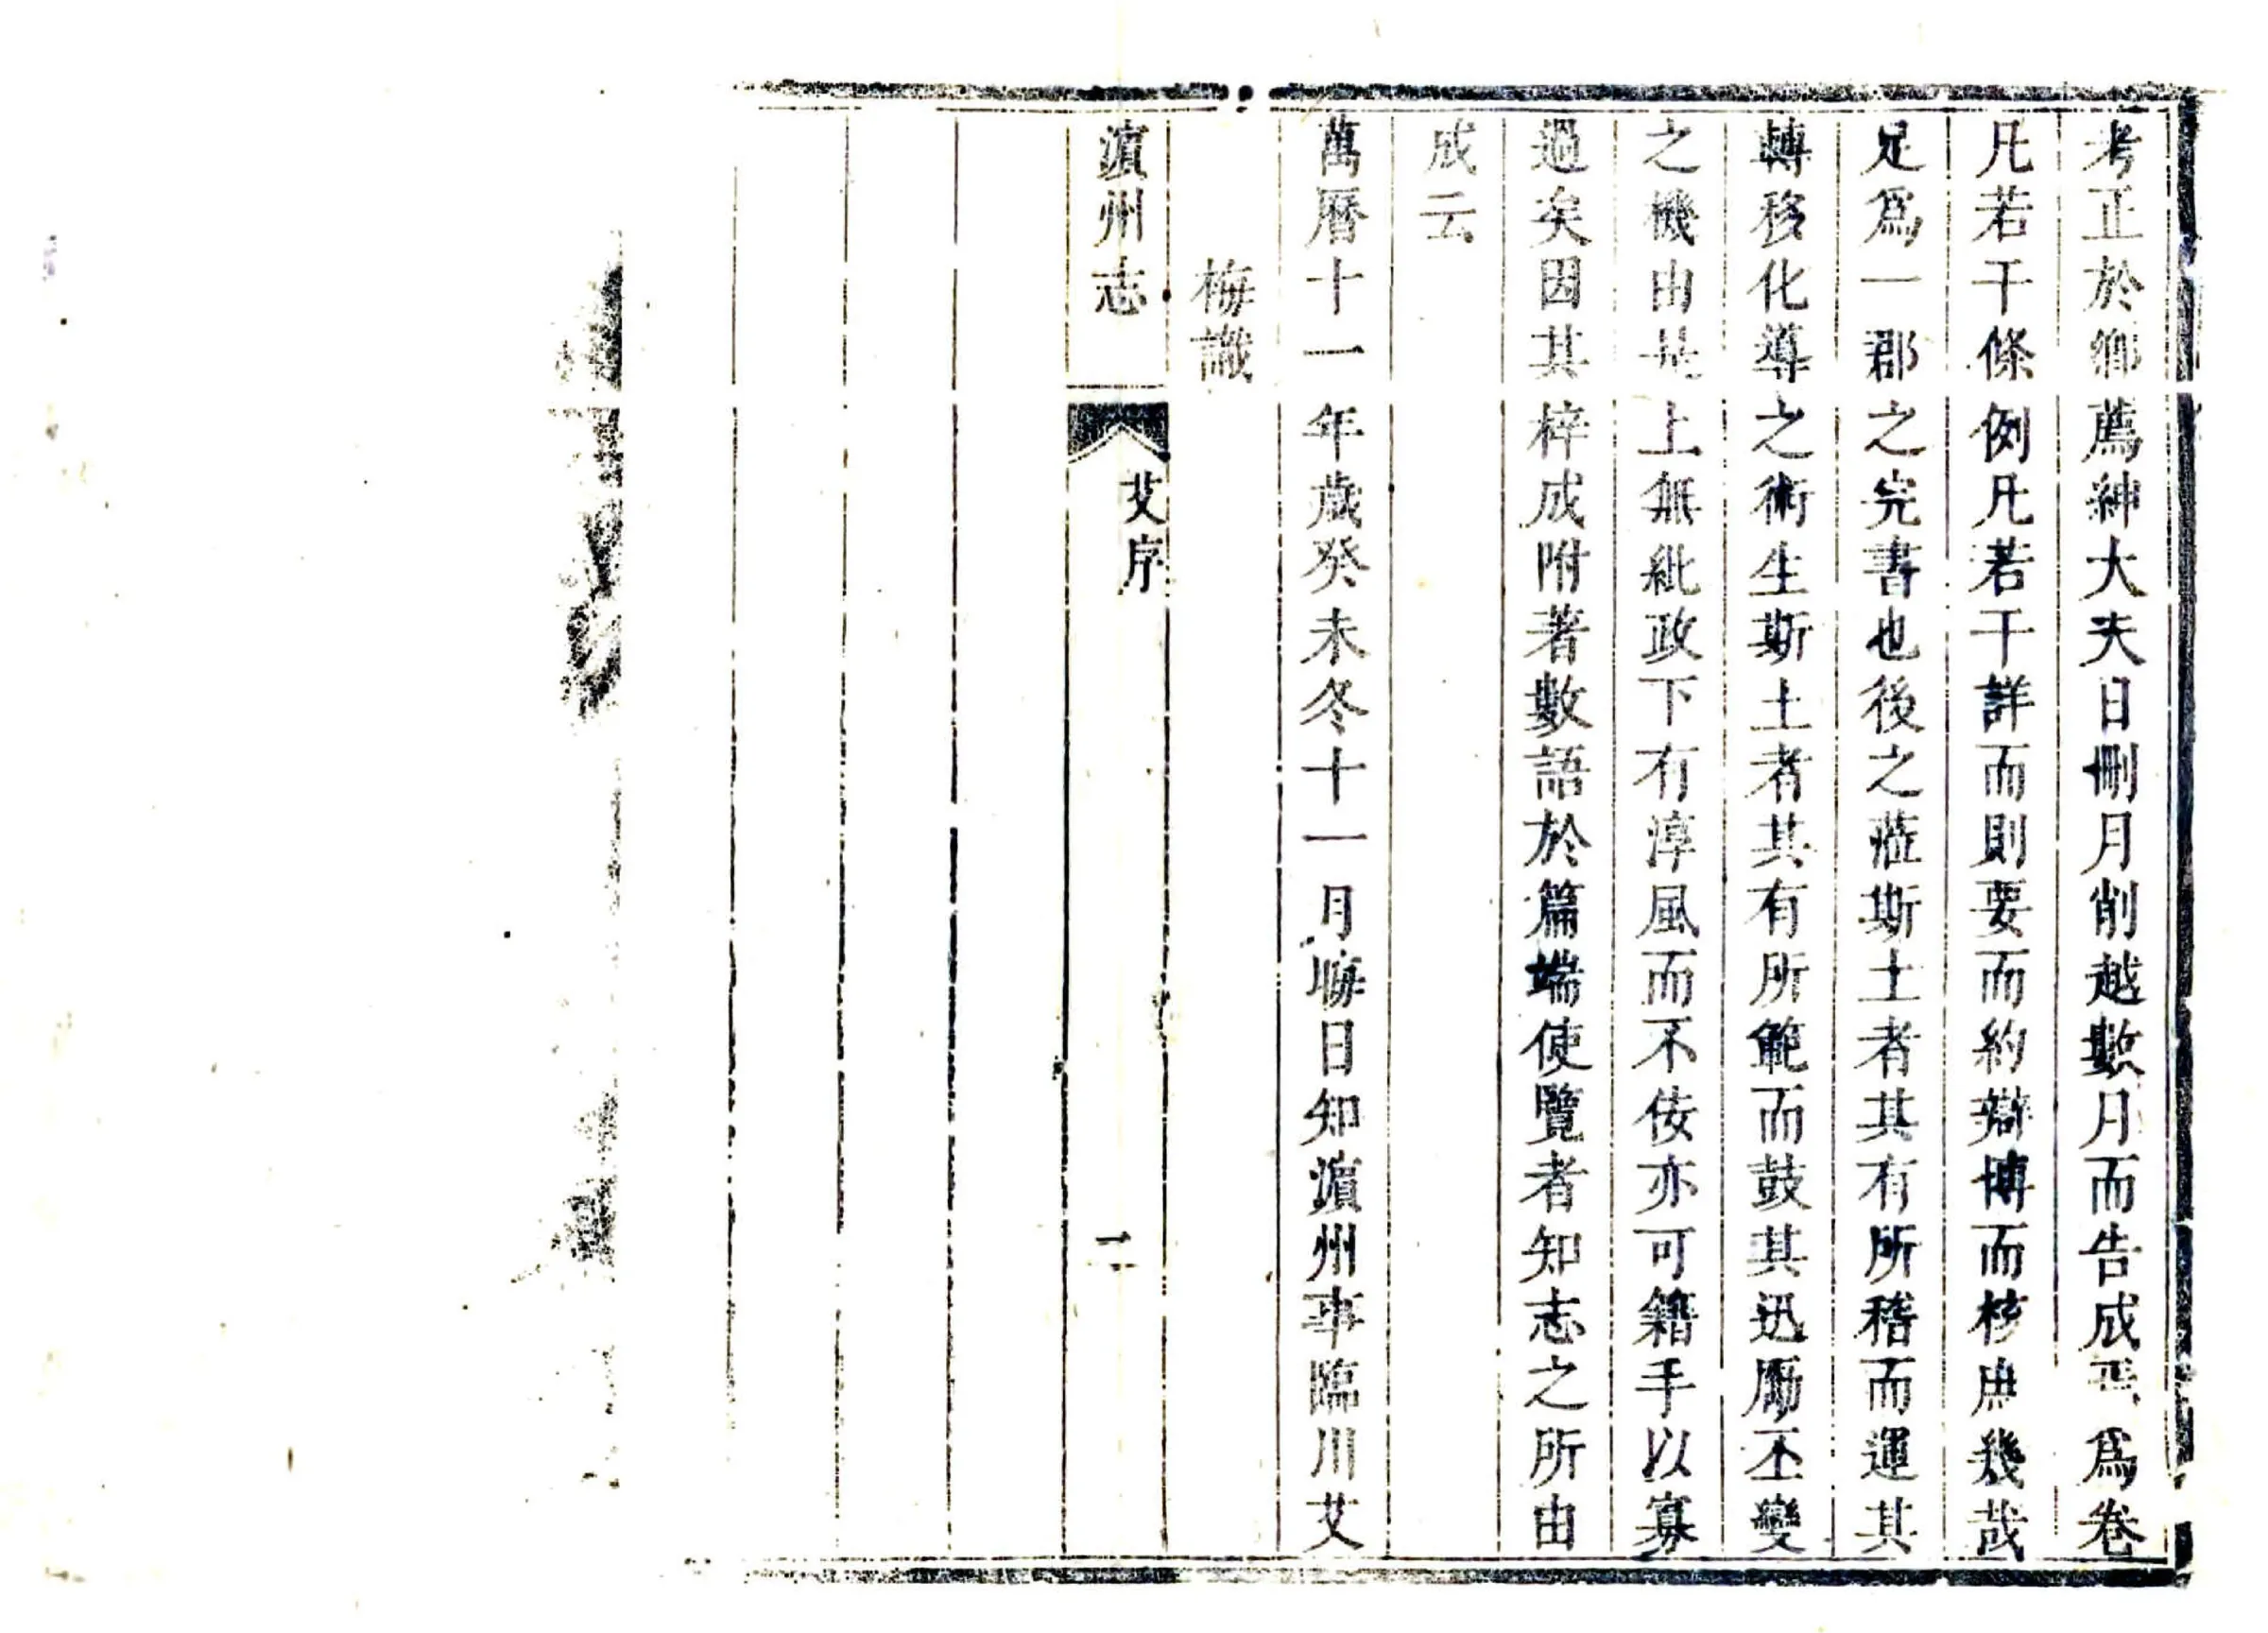 考正於鄉薦紳大夫日刪月削越數月而告成焉爲卷
凡若干條例凡若干詳而則要而約辯博而核庶幾哉
足爲一郡之完書也後之蒞斯土者其有所稽而運其
轉移化導之術生斯土者其有所範而鼓其迅勵丕變
之機由是上無紕政下有淳風而不佞亦可籍手以寡
過矣因其梓成附著數語於篇端使覽者知志之所由
成云
萬曆十一年歲癸未冬十一月晦日知濵州事臨川艾
梅識
濵州志
艾序
二